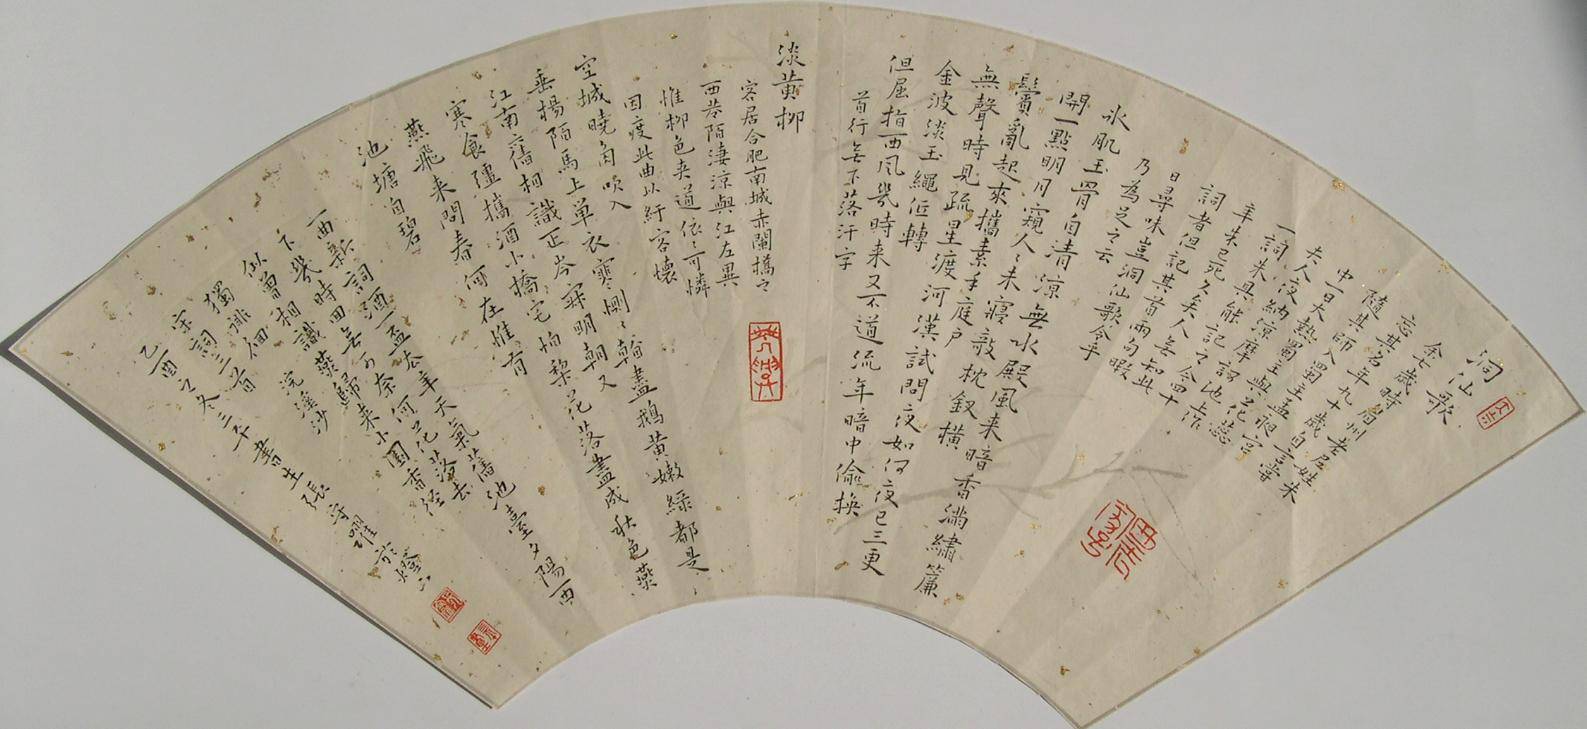 洞仙歌
余七歲時眉州老尼姓朱
忘其名年九十歲自言嘗
隨其師入蜀主孟昶宮
中一日大熱蜀主與花蕊
夫人夜納涼摩訶池上作
一詞朱具能記之今四十
年朱已死久矣人無知此
詞者但記其首兩句暇
日尋味豈洞仙歌令乎
乃為足之云
冰肌玉骨自清涼無水殿風来暗香滿繡簾
開一點明月窺人人未寢敧枕釵橫
鬢亂起來攜素手庭戶
無聲時見疏星渡河漢試問夜如何夜已三更
金波淡玉繩低轉
但屈指西風幾時来又不道流年暗中偷換
首行無下落汗字
淡黃柳
客居合肥南城赤闌橋之
西巷陌淒涼與江左異
惟柳色夾道依依可憐
因度此曲以紓客懷
空城曉角吹入
垂楊陌馬上單衣寒惻惻看盡鵝黃嫩綠都是
江南舊相識正岑寂明朝又
寒食彊攜酒小橋宅怕梨花落盡成秋色燕
燕飛来問春何在惟有
池塘自碧
一曲新詞酒一盃去年天氣舊池臺夕陽西
下幾時回無可奈何花落去
似曾相識燕歸来小園香徑
獨徘徊 浣溪沙
宋詞三首
乙酉之冬三平書生張守曜於燈下